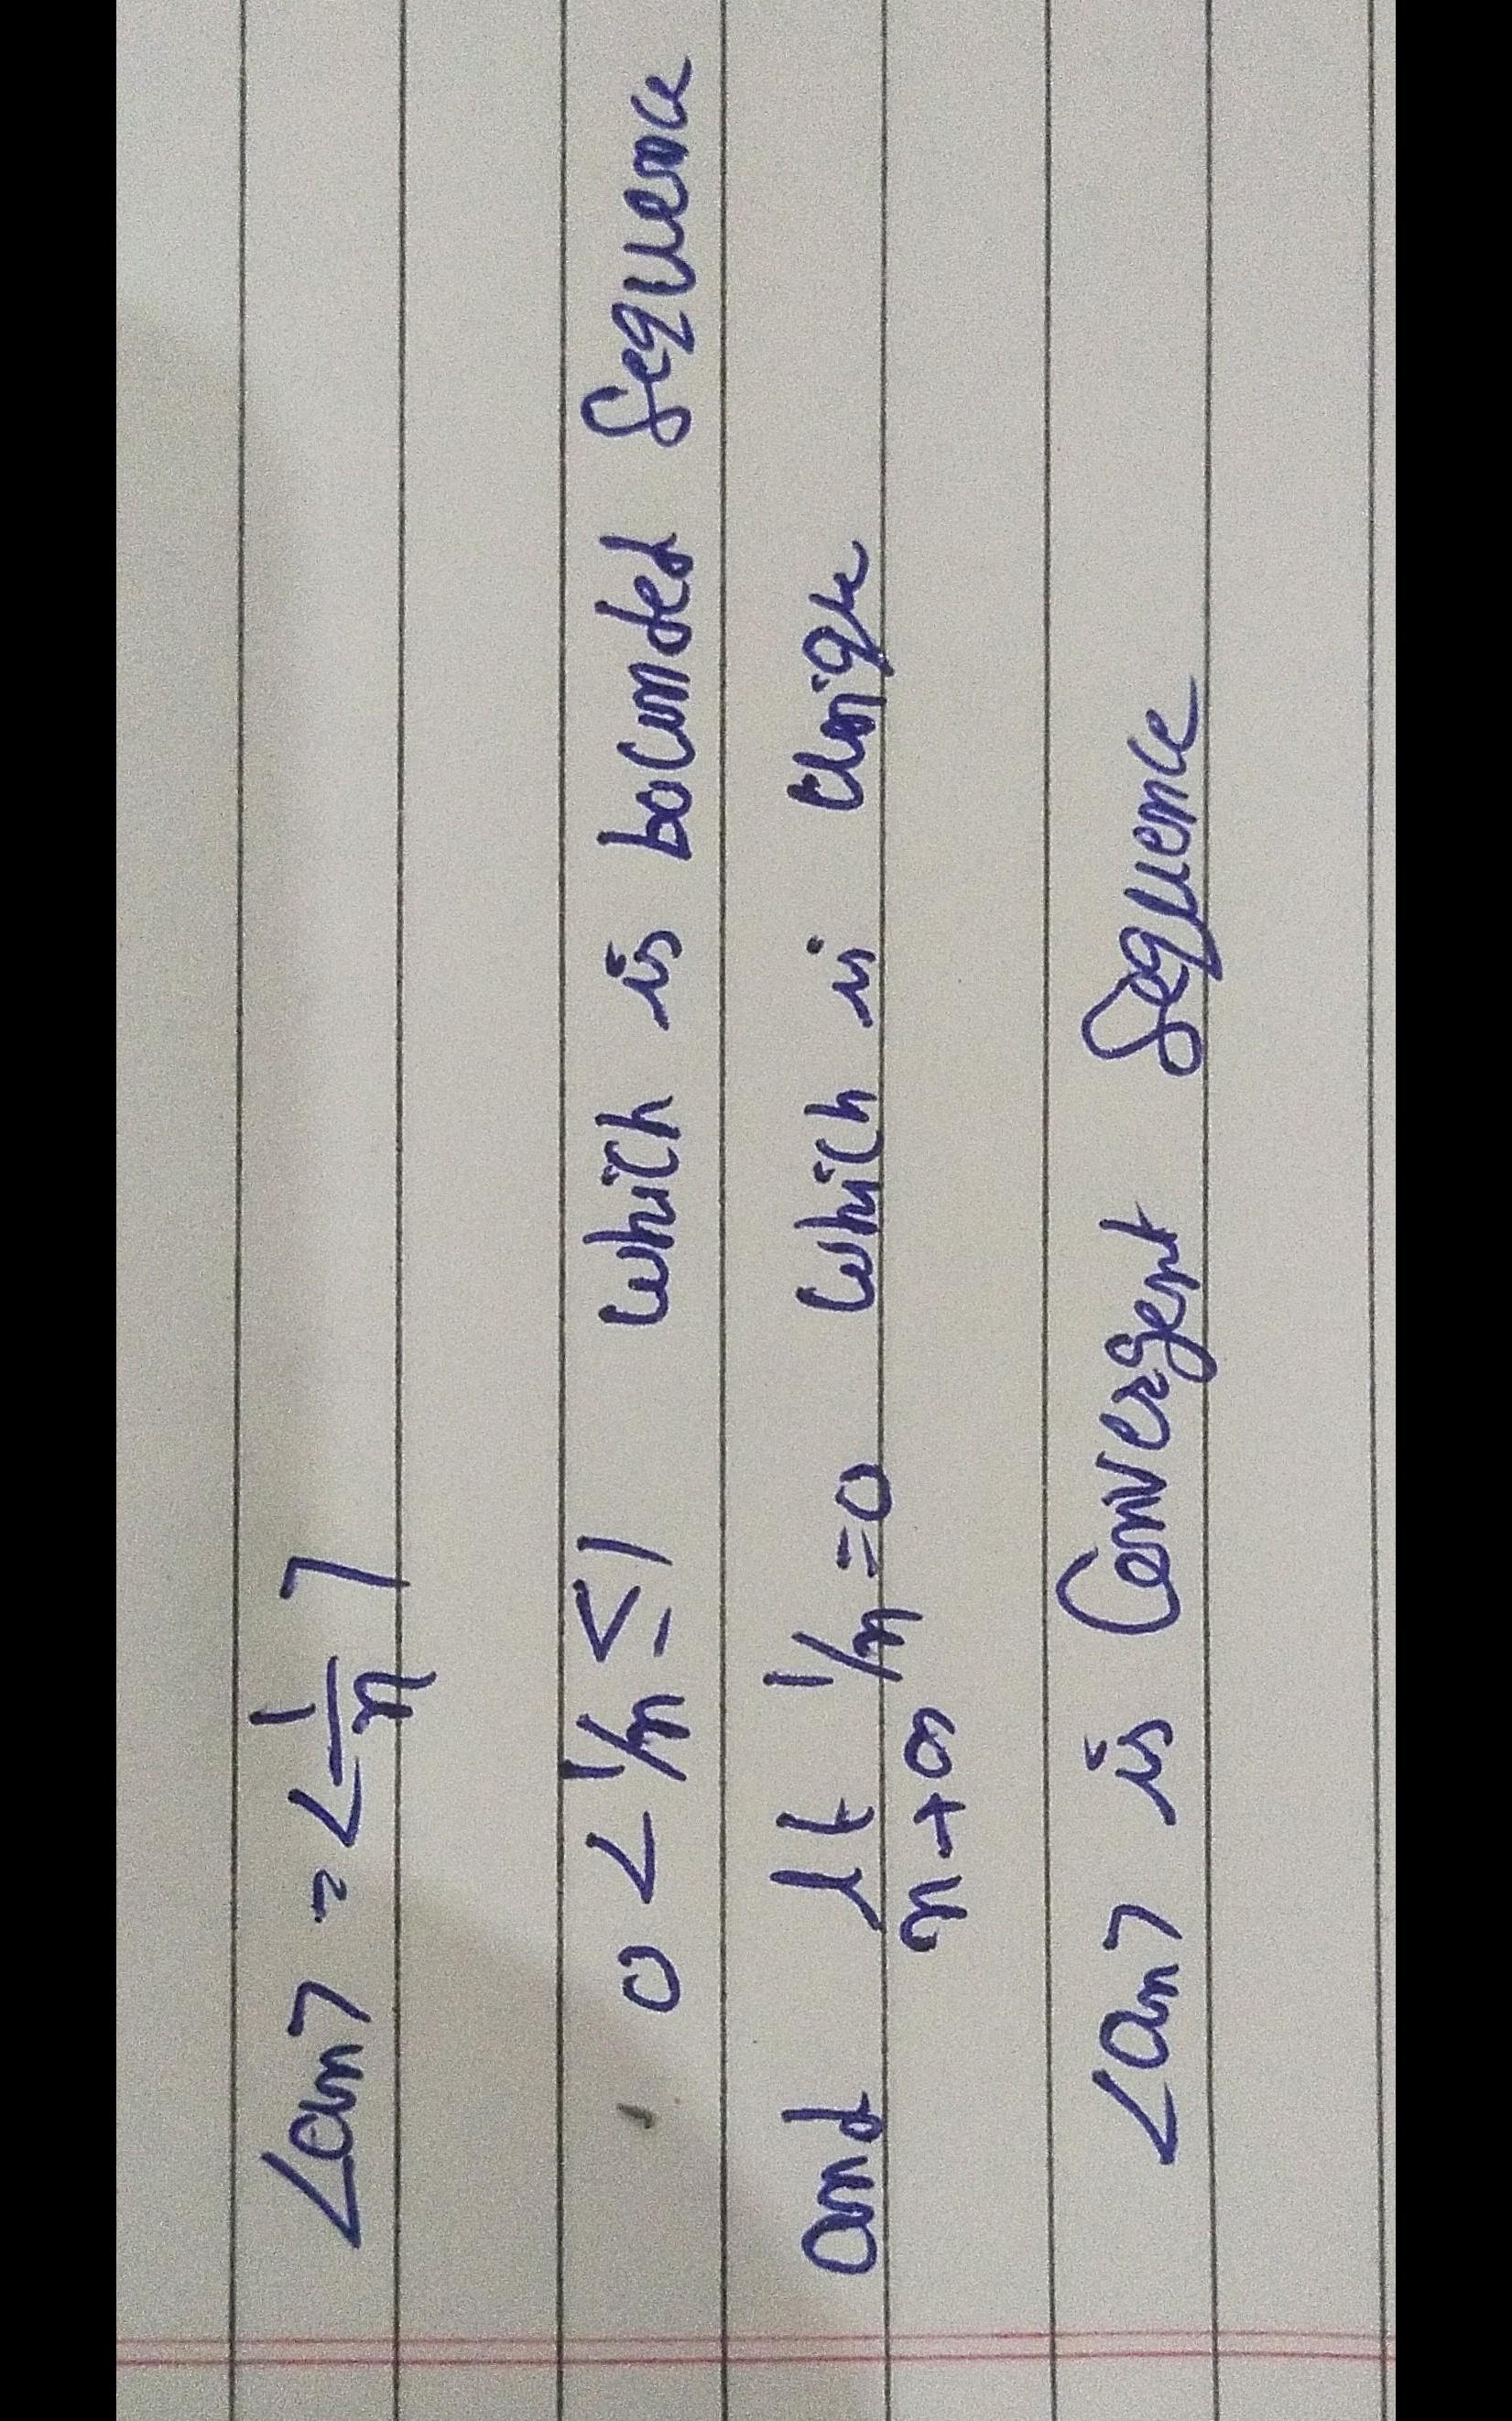 <an> = <1/n>
0 < 1/n ≤ 1 which is bounded Sequence
and lt n→∞ 1/n = 0 which is unique
<an> is Convergent Sequence